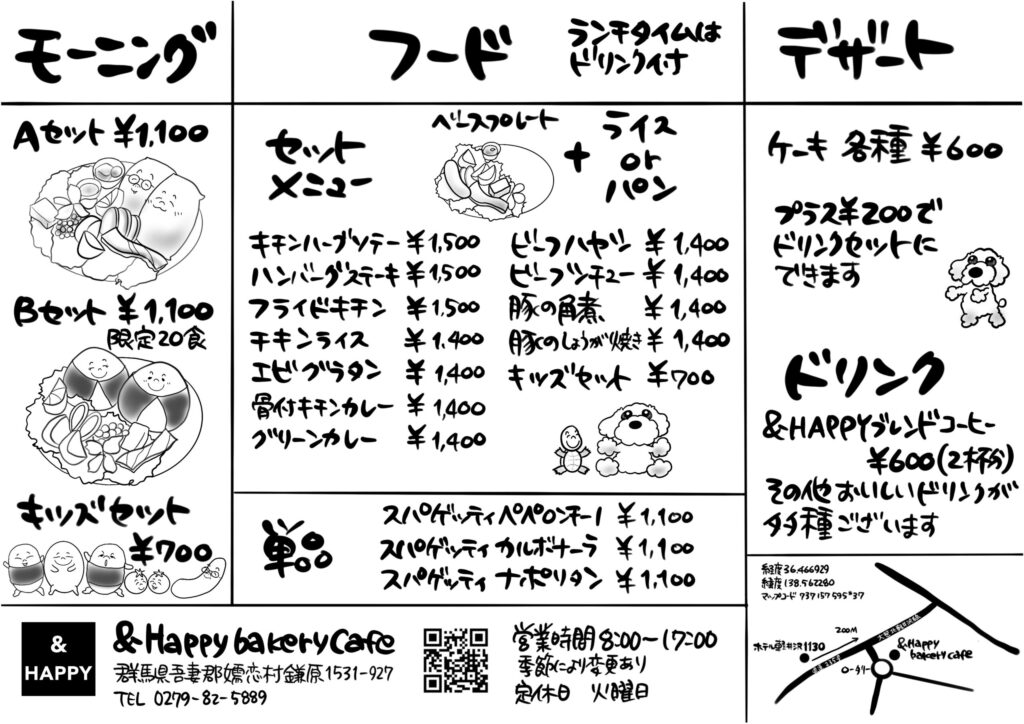 モーニング
Aセット ¥1,100
Bセット ¥1,100
限定20食
キッズセット
¥700
フード
ランチタイムは
ドリンク付
セット
メニュー
ベースプレート
+
ライス
or
パン
チキンハーブソテー ¥1,500
ハンバーグステーキ ¥1,500
フライドチキン ¥1,500
チキンライス ¥1.400
エビグラタン ¥1,400
骨付チキンカレー ¥1,400
グリーンカレー ¥1,400
ビーフハヤシ ¥1,400
ビーフシチュー ¥1,400
豚の角煮 ¥1,400
豚のしょうが焼き ¥1,400
キッズセット ¥700
単品
スパゲッティペペロンチーノ ¥1,100
スパゲッティカルボナーラ ¥1,100
スパゲッティナポリタン ¥1,100
デザート
ケーキ 各種 ¥600
プラス¥200で
ドリンクセットに
できます
ドリンク
&HAPPYブレンドコーヒー
¥600(2杯分)
その他おいしいドリンクが
多種ございます
&
HAPPY
&Happy bakery cafe
群馬県吾妻郡嬬恋村鎌原1531-927
TEL 0279-82-5889
営業時間 8:00〜17:00
季節により変更あり
定休日 火曜日
経度36.466929
緯度138.562280
マップコード 737157595*37
200M
ホテル軽井沢1130
&Happy
bakery cafe
ロータリー